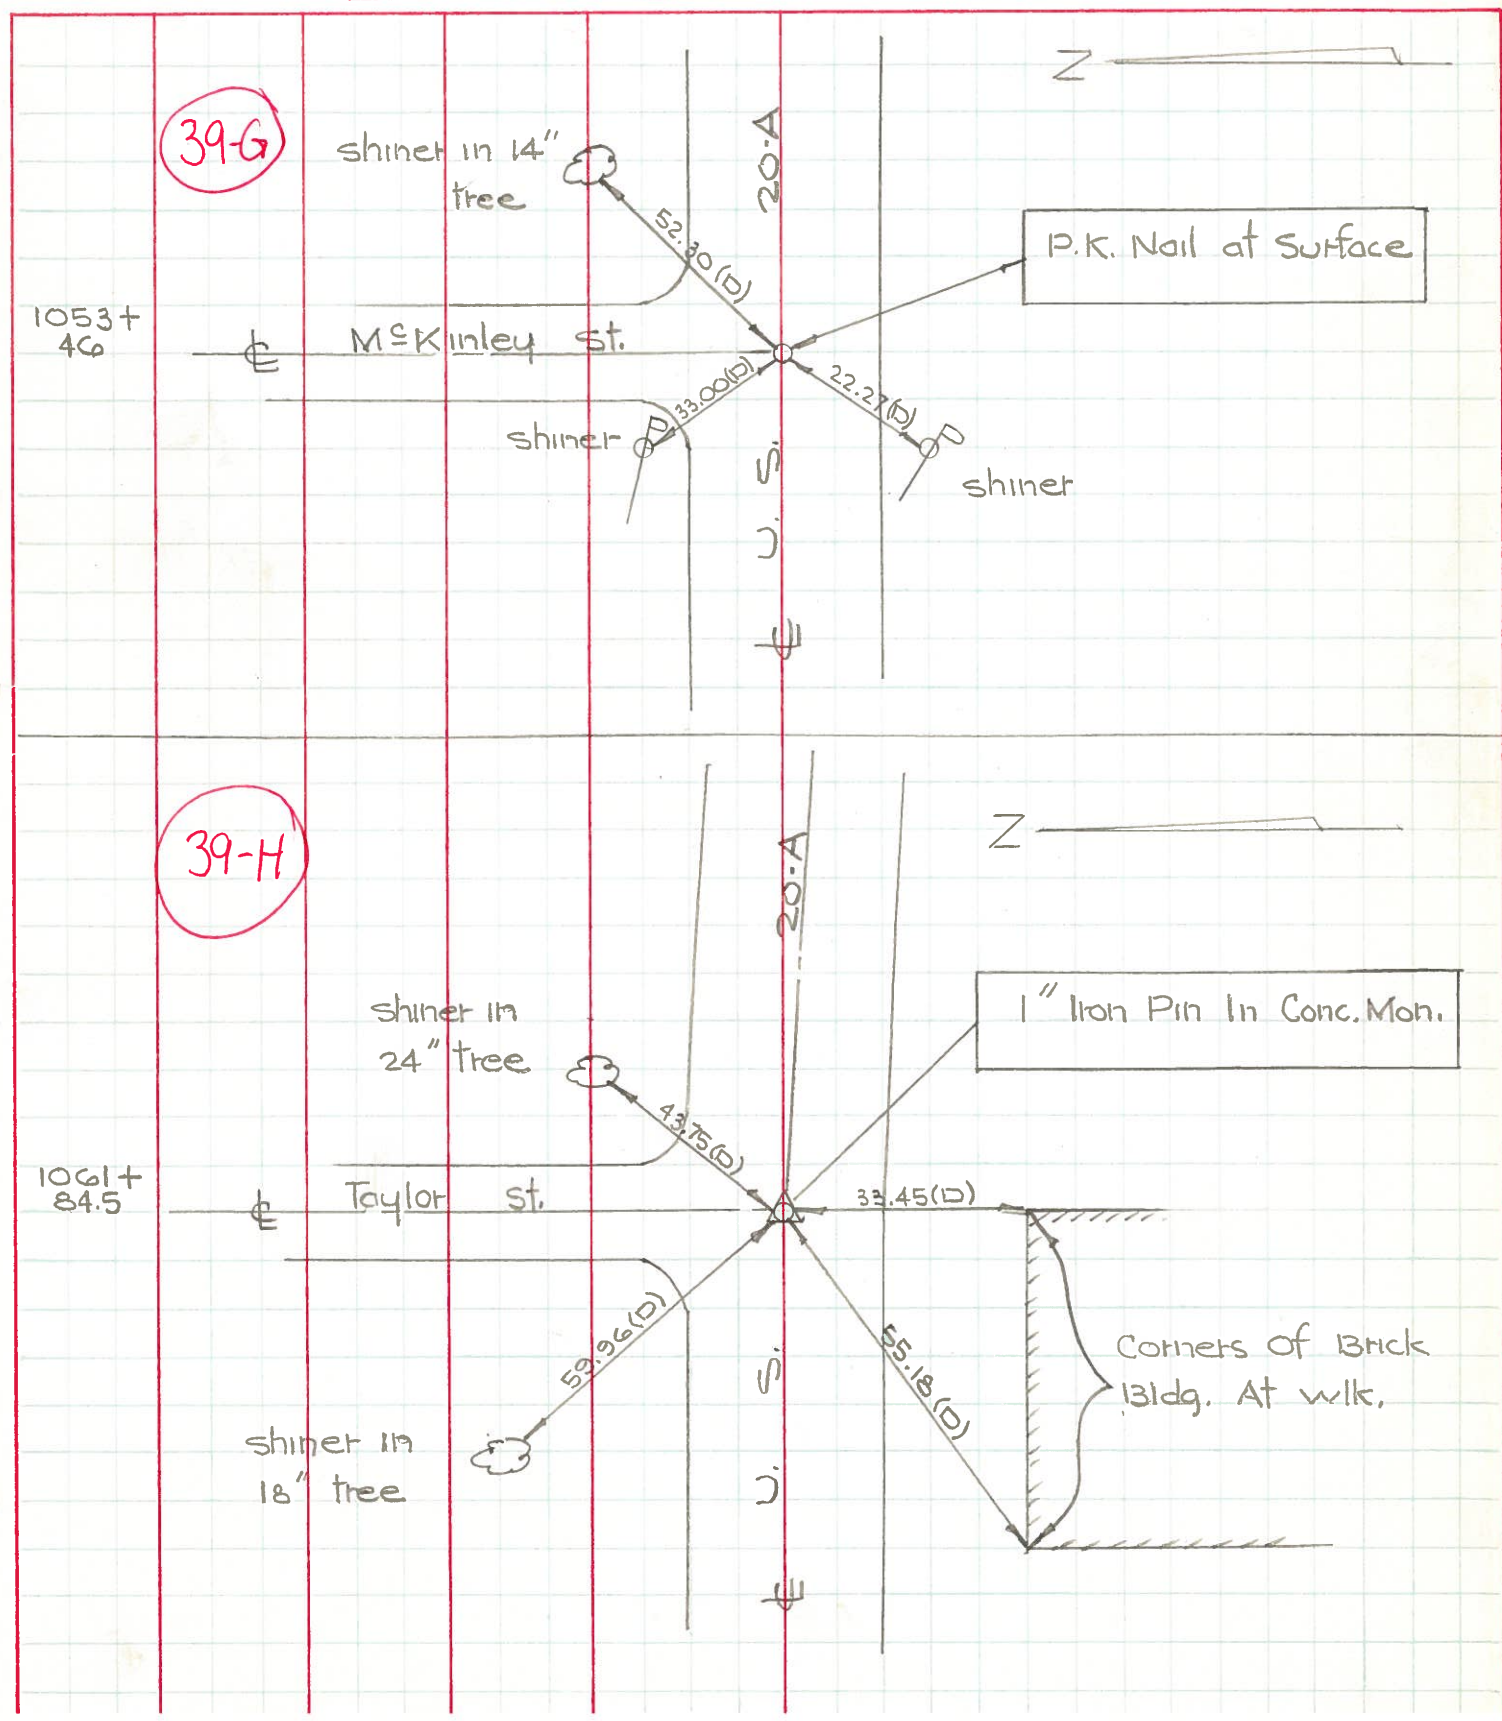 39-G
Z
shiner in 14"
tree
20-A
52.30(D)
P.K. Nail at Surface
1053+
46
℄ McKinley St.
33.00(D)
22.27(D)
P
shiner
P
shiner
U. S.
℄
39-H
Z
20-A
shiner in
24" tree
1" Iron Pin In Conc. Mon.
43.75(D)
1061+
84.5
℄ Taylor St.
33.45(D)
59.96(D)
55.18(D)
Corners Of Brick
Bldg. At wlk.
shiner in
18" tree
U. S.
℄